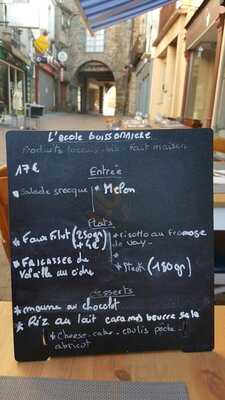 L'école buissonnière
Produits locaux - bio - Fait maison
17€
Entrée
* Salade grecque * Melon
Plats
* Faux Filet (250gr) * risotto au fromage
+4€ de
* Fricassée de
Volaille au cidre * Steak (180gr)
Desserts
* mousse au chocolat
* Riz au lait caramel beurre salé
* Cheese-cake coulis pêche
abricot